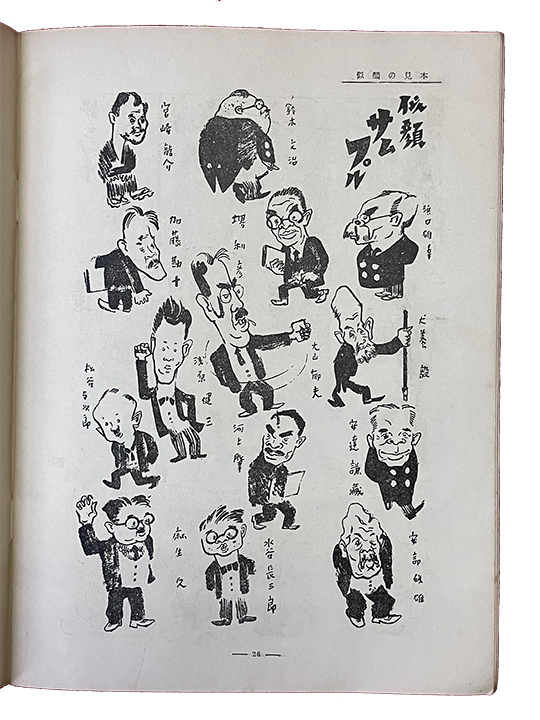 似顔の見本
似顔
サム
プル
浜口雄幸
犬養毅
安達謙藏
安部磯雄
鈴木文治
堺利彦
大山郁夫
河上肇
水谷長三郎
宮崎龍介
加藤勘十
浅原健三
松谷与次郎
麻生久
— 26 —